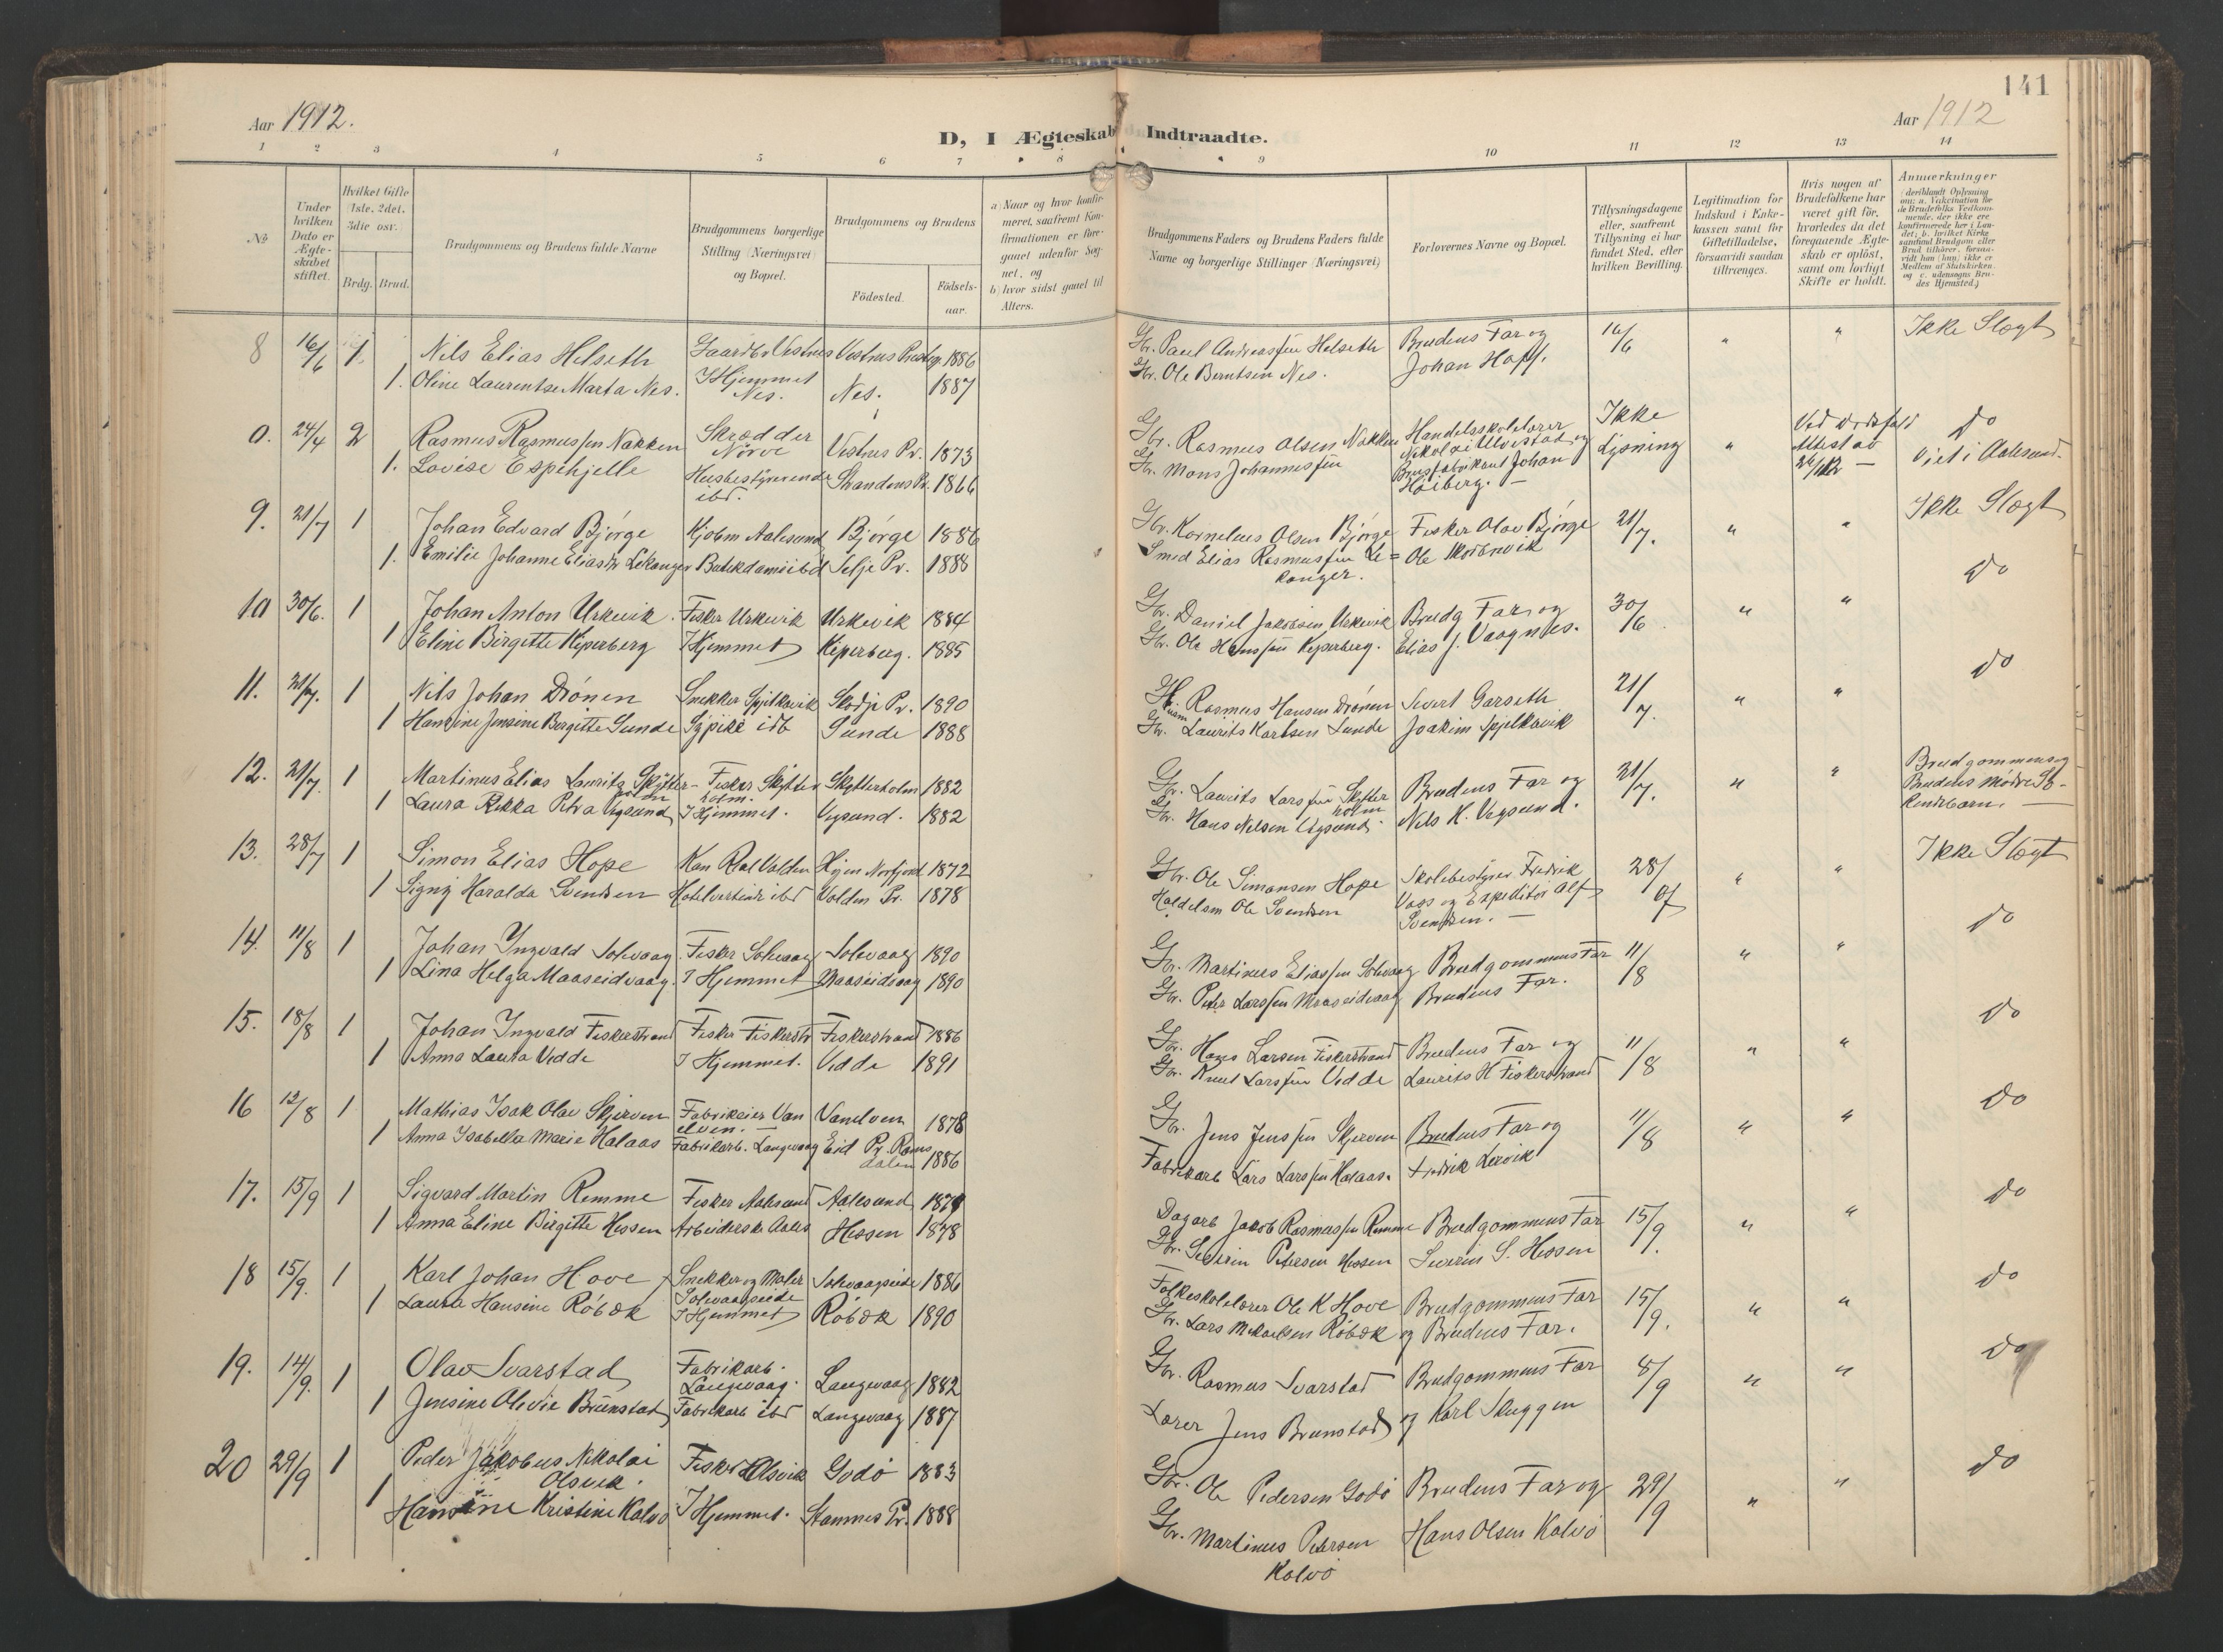 141
Aar 1912.
Aar 1912
D, I Ægteskab Indtraadte.
1 2 3 4 5 6 7 8 9 10 11 12 13 14
No
Under hvilken Dato er Ægteskabet stiftet.
Hvilket Gifte (1ste, 2det, 3die osv.
Brdg. Brud.
Brudgommens og Brudens fulde Navne
Brudgommens borgerlige Stilling (Næringsvei) og Bopæl.
Brudgommens og Brudens
Födested.
Födsels-aar.
a) Naar og hvor konfirmeret, saafremt Konfirmationen er foregaaet udenfor Sognet, og
b) hvor sidst gaaet til Alters.
Brudgommens Faders og Brudens Faders fulde Navne og borgerlige Stillinger (Næringsvei)
Forlovernes Navne og Bopæl.
Tillysningsdagene eller, saafremt Tillysning ei har fundet Sted, efter hvilken Bevilling.
Legitimation for Indskud i Enkekassen samt for Giftetilladelse, forsaavidt saadan tiltrænges.
Hvis nogen af Brudefolkene har været gift för, hvorledes da det foregaaende Ægteskab er oplöst, samt om lovligt Skifte er holdt.
Anmærkninger
(deriblandt Oplysning om: a. Vakcination for de Brudefolks Vedkommende, der ikke ere konfirmerede her i Landet; b. hvilket Kirkesamfund Brudgom eller Brud tilhörer, forsaavidt han (hun) ikke er Medlem af Statskirken, og c. udensogns Brudes Hjemsted.)
8 16/6 1 Nils Elias Helseth Gaardbr Vestnes Vestnes Prestegj 1886 Gbr. Paul Andreassen Helseth Brudens Far og 16/6 " " Ikke Slægt
1. Oline Laurentse Marta Nes. I Hjemmet Nes. Nes. 1887 Gbr. Ole Berntsen Nes. Johan Hoff.
0. 24/4 2 Rasmus Rasmussen Nakken Skrædder Nörve Vestnes Pr. 1873 Gbr. Rasmus Olsen Nakken Handelsskolelærer Nikolai Ulvestad og Ikke Lysning " Ved Dødsfald Attest av do
1. Lovise Espehjelle Husbestyrerinde ibd. Strandens Pr. 1866 Gbr. Mons Johannessen Brusfabrikant Johan Höiberg. — Viet i Aalesund.
9. 21/7 1 Johan Edvard Bjørge Kjøbm Aalesund Bjørge 1886 Gbr. Kornelius Olsen Bjørge Fisker Olav Bjørge 21/7. " " Ikke Slægt
1. Emilie Johanne Eliasdr Lekanger Butikdame ibd Selje Pr. 1888 Smed Elias Rasmussen Le=kanger. Ole
10 30/6. 1 Johan Anton Urkevik Fisker Urkevik Urkevik 1884 Gbr. Daniel Jakobsen Urkevik Brudg Far og 30/6 " " do
1 Eline Birgitte Kyperberg I Hjemmet Kyperberg. 1885 Gbr. Ole Hanssen Kyperberg. Elias J. Vaagnes.
11. 21/7. 1 Nils Johan Drönen Snekker Spjelkavik Skodje Pr. 1890 Rasmus Hansen Drönen Sivert Garseth 21/7. " " do
1 Hansine Jensine Bergitte Sunde Sypike ibd Sunde 1888 Gbr. Laurits Karlsen Sunde Joakim Spjelkavik
12. 21/7. 1 Martinus Elias Lauritz Skytter-holm Fisker Skytterholm. Skytterholm 1882 Gbr. Laurits Larssen Skytterholm Brudens Far og 21/7. " " Brudgommens og Brudens Mödre Söskendebarn. —
1 Laura Rikka Petra Vegsund I Hjemmet. Vegsund. 1882 Gbr. Hans Nilsen Vegsund. Nils H. Vegsund.
13. 28/7 1 Simon Elias Hope Volden Hyen Norfjord 1872 Gbr. Ole Simonsen Hope Skolebestyrer Fredrik 28/7 " " Ikke Slægt
1 Signy Haralda Svendsen Hotelvertinde ibd Volden Pr. 1878 Ole Svendsen Voss og Expeditör Alf Svendsen. —
14. 11/8 1 Johan Ingvald Solevaag Fisker Solevaag Solevaag 1890 Gbr. Martinus Eliassen Solevaag Brudgommens Far 11/8 " " do
1 Lina Helga Maaseidvaag. I Hjemmet Maaseidvaag 1890 Gbr. Peter Larssen Maaseidvaag Brudens Far.
15. 18/8 1 Johan Ingvald Fiskerstrand Fisker Fiskerstr Fiskerstrand 1886 Gbr. Hans Larsen Fiskerstrand Brudens Far og 11/8 " " do
1 Anna Laura Vedde I Hjemmet. Vedde 1891 Gbr. Knut Larssen Vedde Laurits H Fiskerstrand
16 12/8 1 Mathias Isak Olav Skjerven Fabrikeier Vanelven. — Vanelven 1878 Gbr. Jens Jenssen Skjerven Brudens Far og 11/8 " " do
1 Anna Isabella Marie Halaas Fabrikarb. Langevaag Eid Pr. Romsdalen 1886 Fabrikarb Lars Larssen Halaas. Fredrik Lervik
17. 15/9 1 Sigvard Martin Remme Fisker Aalesund Aalesund 1879 Dagarb Jakob Rasmussen Remme Brudgommens Far 15/9. " " do
1 Anna Eline Birgitte Hessen Arbeiderske Aales Hessen 1878 Gbr. Severin Petersen Hessen Severin S. Hessen
18 15/9. 1 Karl Johan Hove Snekker og Maler Solevaagseide Solevaagseide 1886 Folkeskolelærer Ole K Hove Brudgommens Far 15/9. " " do
1 Laura Hansine Röbæk I Hjemmet Röbæk 1890 Gbr. Lars Mikaelsen Röbæk og Brudens Far.
19. 14/9. 1 Olav Svarstad Fabrikarb. Langevaag. Langevaag 1882 Gbr. Rasmus Svarstad Brudgommens Far 8/9 " " do
1 Jensine Olivie Brunstad Fabrikarb ibd Langevaag 1887 Lærer Jens Brunstad og Karl Skuggen
20 29/9 1 Peder Jakobus Nikolai Olsvik. Fisker Olsvik Godö 1883 Gbr. Ole Pedersen Godö Brudens Far og 29/9 " " do
1 Hansine Kristine Kalvö I Hjemmet. Stamnes Pr. 1888 Gbr. Martinus Petersen Kalvö Hans Olsen Kalvö